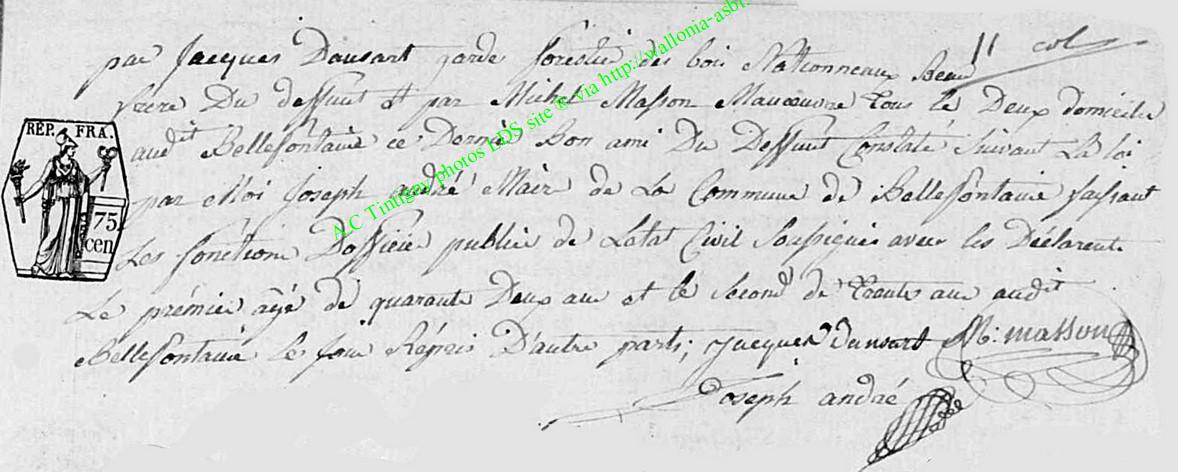 11 col
par Jacques Dansart garde forestier des bois Nationneaux Beau
frere Du deffunt et par Michel Masson Manoeuvre tous le Deux domicilie
audit Bellefontaine ce Dernier Bon ami Du Deffunt Constaté Suivant La loi
par Moi Joseph andré Mair de La Commune de Bellefontaine faisant
Les fonctions Dofficier public de Letat Civil Soussigné avec les Déclarents
Le prémier âgé de quarante Deux ans et le Second de trente ans audit
Bellefontaine le jour Répris D'autre parts; Jacques dansart M: masson
Joseph andré
RÉP. FRA.
75
cen
A.C Tintigny photos LDS site ® via http://wallonia-asbl.